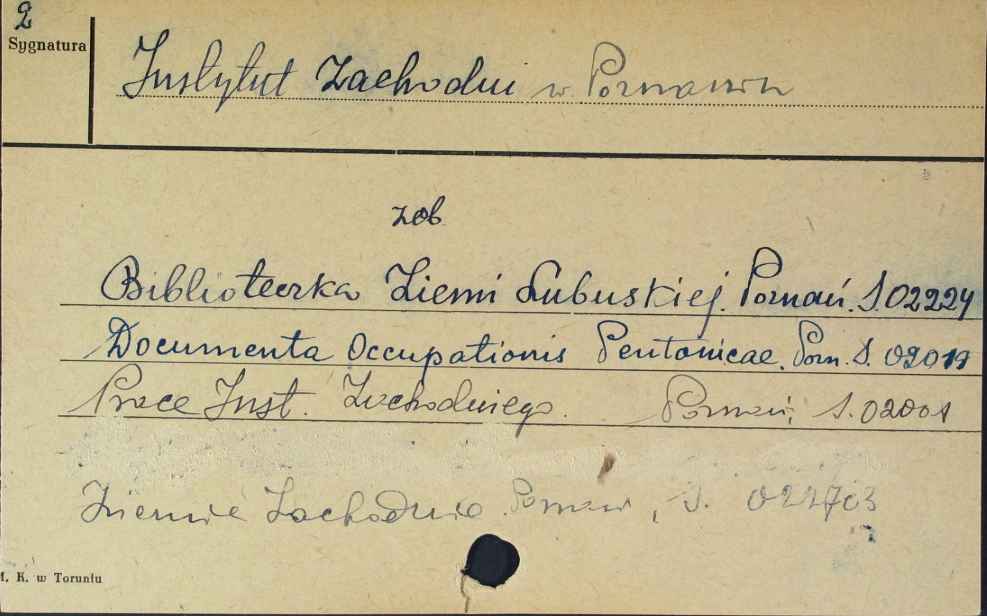 2
Sygnatura
Instytut Zachodni w Poznaniu
zob
Biblioteczka Ziemi Lubuskiej. Poznań. S.02224
Documenta Occupationis Teutonicae. Pozn. S. 02019
Prace Inst. Zachodniego. Poznań, S.02001
Ziemie Zachodnie. Poznań, S.
M. K. w Toruniu